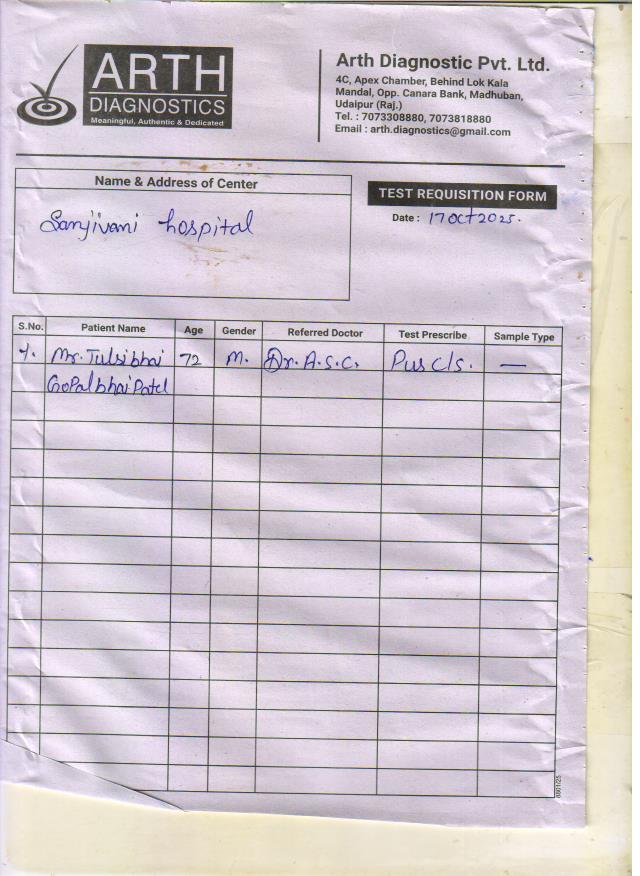 ARTH
DIAGNOSTICS
Meaningful, Authentic & Dedicated
Arth Diagnostic Pvt. Ltd.
4C, Apex Chamber, Behind Lok Kala
Mandal, Opp. Canara Bank, Madhuban,
Udaipur (Raj.)
Tel. : 7073308880, 7073818880
Email : arth.diagnostics@gmail.com
Name & Address of Center
Sanjivani hospital
TEST REQUISITION FORM
Date : 17 Oct 2025.
S.No. Patient Name Age Gender Referred Doctor Test Prescribe Sample Type
1. Mr. Tulsibhai 72 M. Dr. A.S.C. Pus C/S. —
GoPalbhai Patel